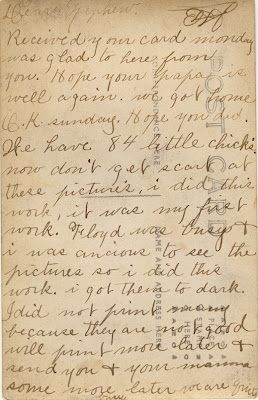 Dear Nephew.
Received your card monday
was glad to here from
you. Hope your papa is
well again. we got home
O.K sunday. Hope you did.
We have 84 little chicks.
now don't get scart at
these pictures, i did this
work, it was my first
work. Floyd was busy &
i was ancious to see the
pictures so i did this
work. i got them to dark.
I did not print many
because they are not good
will print more later &
send you & your mamma
some more later we are
POST CARD
CORRESPONDENCE HERE
NAME AND ADDRESS HERE